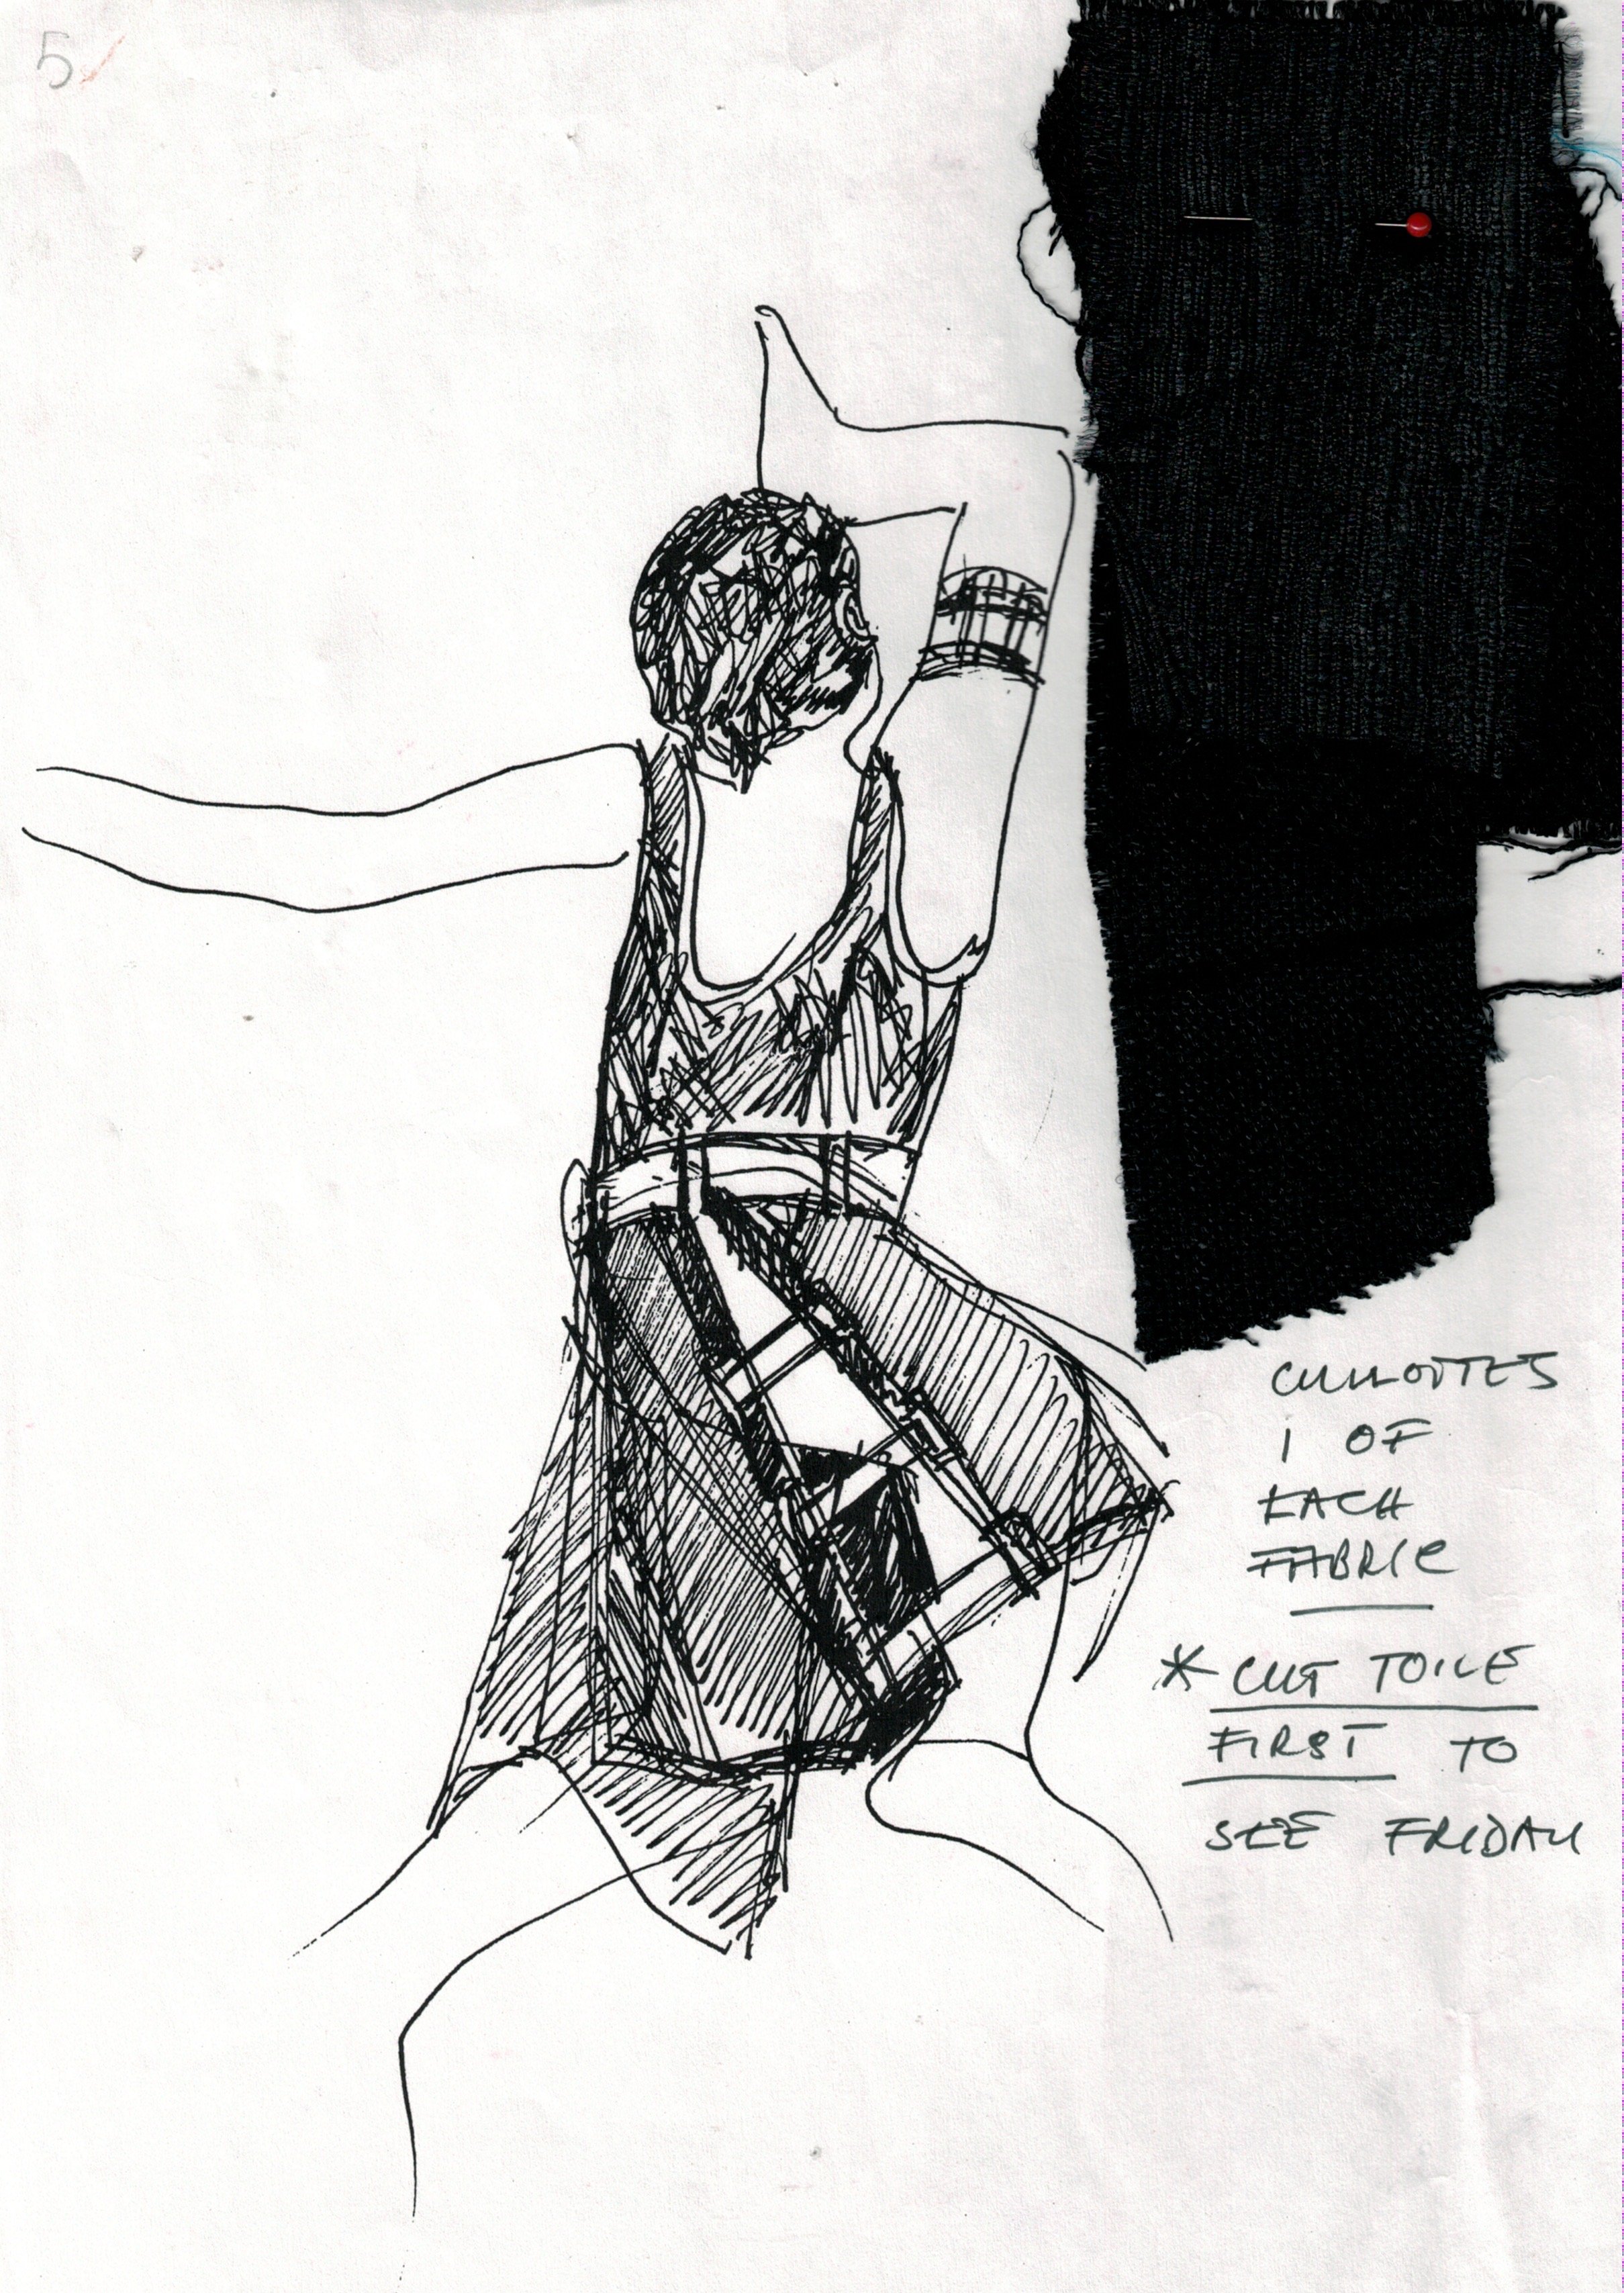 5
CULLOTTES
1 OF
EACH
FABRIC
* CUT TOILE
FIRST TO
SEE FRIDAY